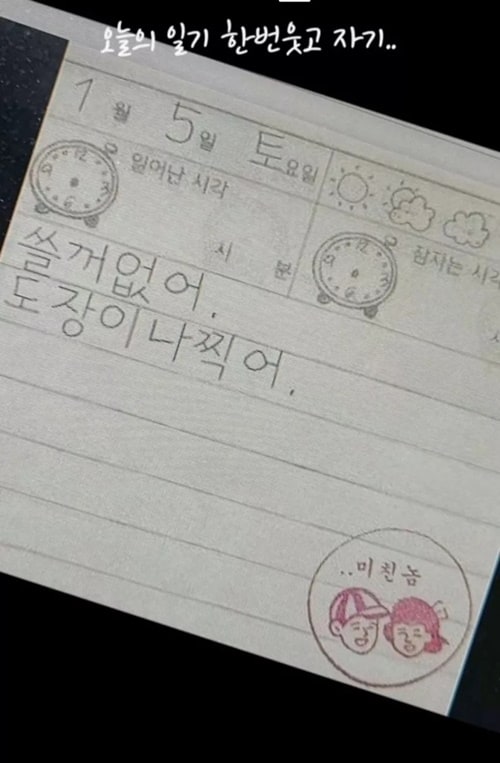 오늘의 일기 한번웃고 자기..
1월 5일 토요일
일어난 시각
시 분
잠자는 시각
쓸꺼없어.
도장이나찍어.
..미친놈